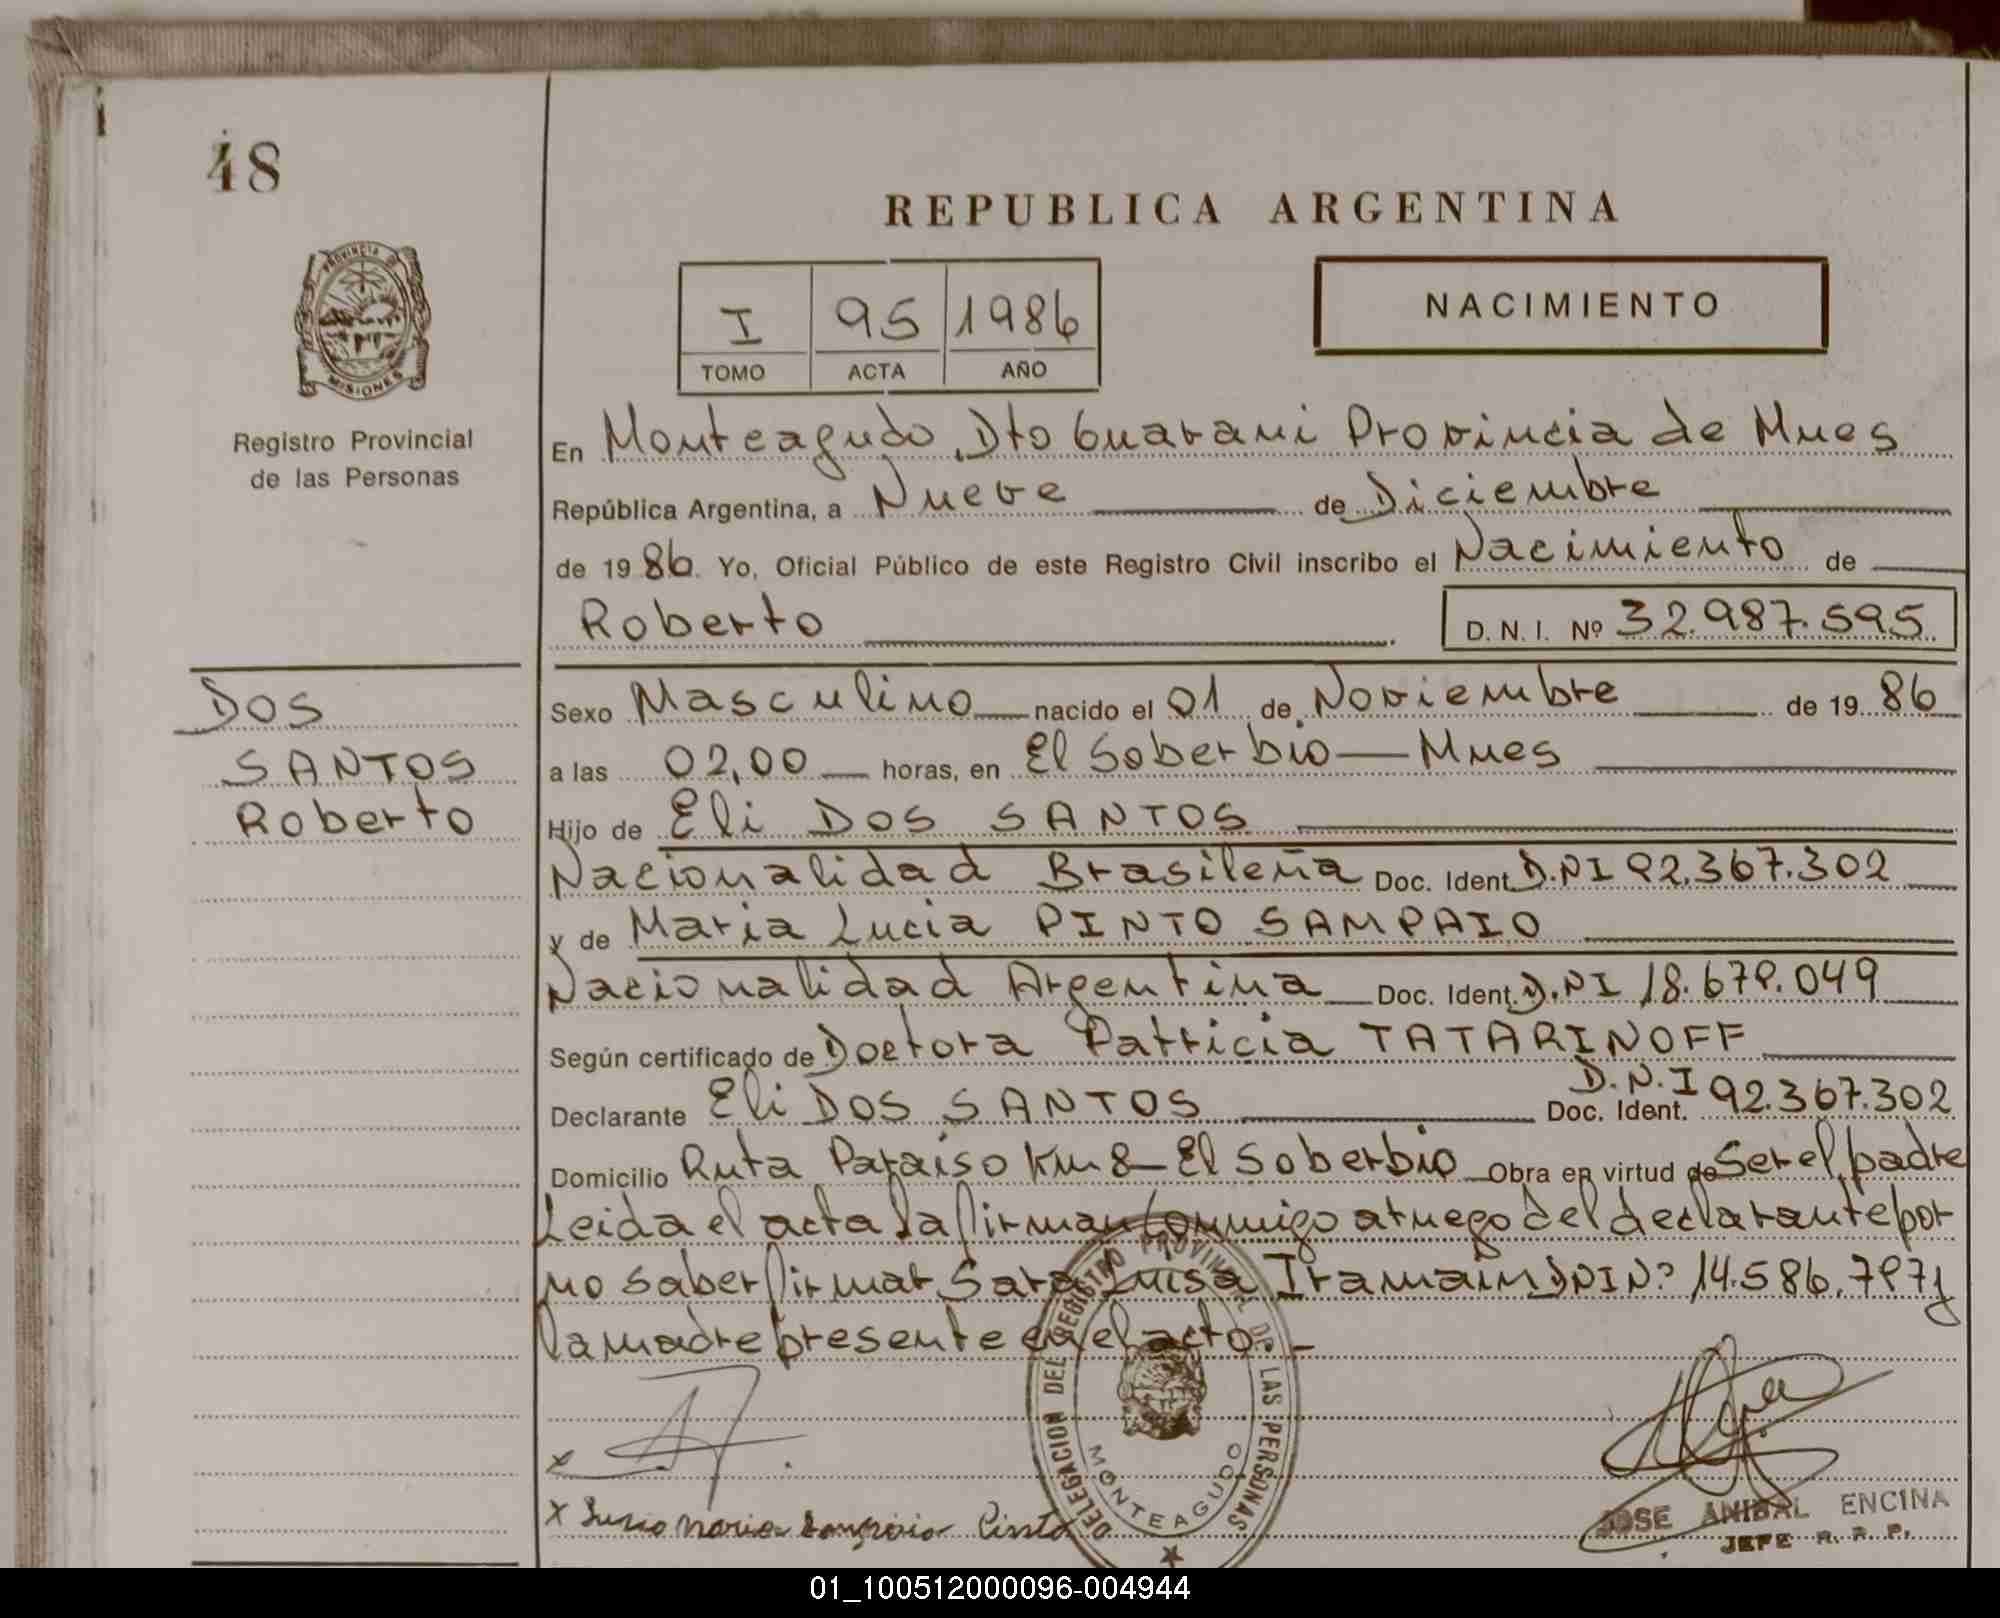 48
REPUBLICA ARGENTINA
PROVINCIA DE
MISIONES
Registro Provincial
de las Personas
I 95 1986
TOMO ACTA AÑO
NACIMIENTO
En Monteagudo, Dto Guarani Provincia de Mnes
República Argentina, a Nueve de Diciembre
de 1986. Yo, Oficial Público de este Registro Civil inscribo el Nacimiento de
Roberto D. N. I. Nº 32.987.595
DOS
SANTOS
Roberto
Sexo Masculino nacido el 01 de Noviembre de 1986
a las 02,00 horas, en El Soberbio — Mnes
Hijo de Eli DOS SANTOS
Nacionalidad Brasileña Doc. Ident. D.NI 92.367.302
y de Maria Lucia PINTO SAMPAIO
Nacionalidad Argentina Doc. Ident. D.NI 18.679.049
Según certificado de Doctora Patricia TATARINOFF
Declarante Eli DOS SANTOS Doc. Ident. D.N.I 92.367.302
Domicilio Ruta Paraiso Km 8 - El Soberbio Obra en virtud de Ser el padre
Leida el acta la firman Conmigo a ruego del declarante por
no saber firmar Sara Luisa Iramain DNI Nº 14.586.797 y
la madre presente en el acto.-
DELEGACION DEL REGISTRO PROVINCIAL DE LAS PERSONAS
MONTEAGUDO
x
x Lucia Maria Sampaio Pinto
JOSE ANIBAL ENCINA
JEFE R. P. P.
01_100512000096-004944